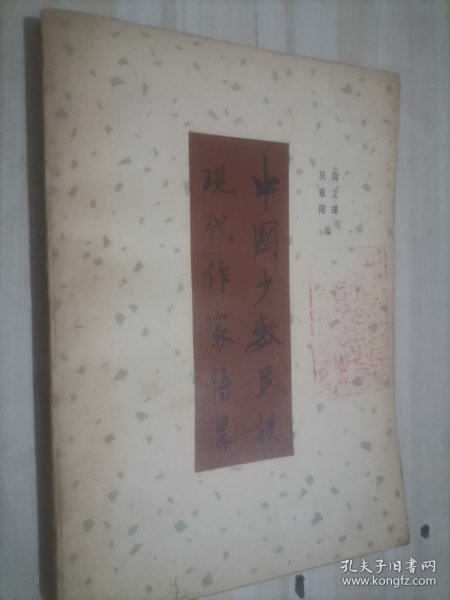 中國少数民族
现代作家传畧
吴重阳
陶立璠
编
孔夫子旧书网
www.kongfz.com